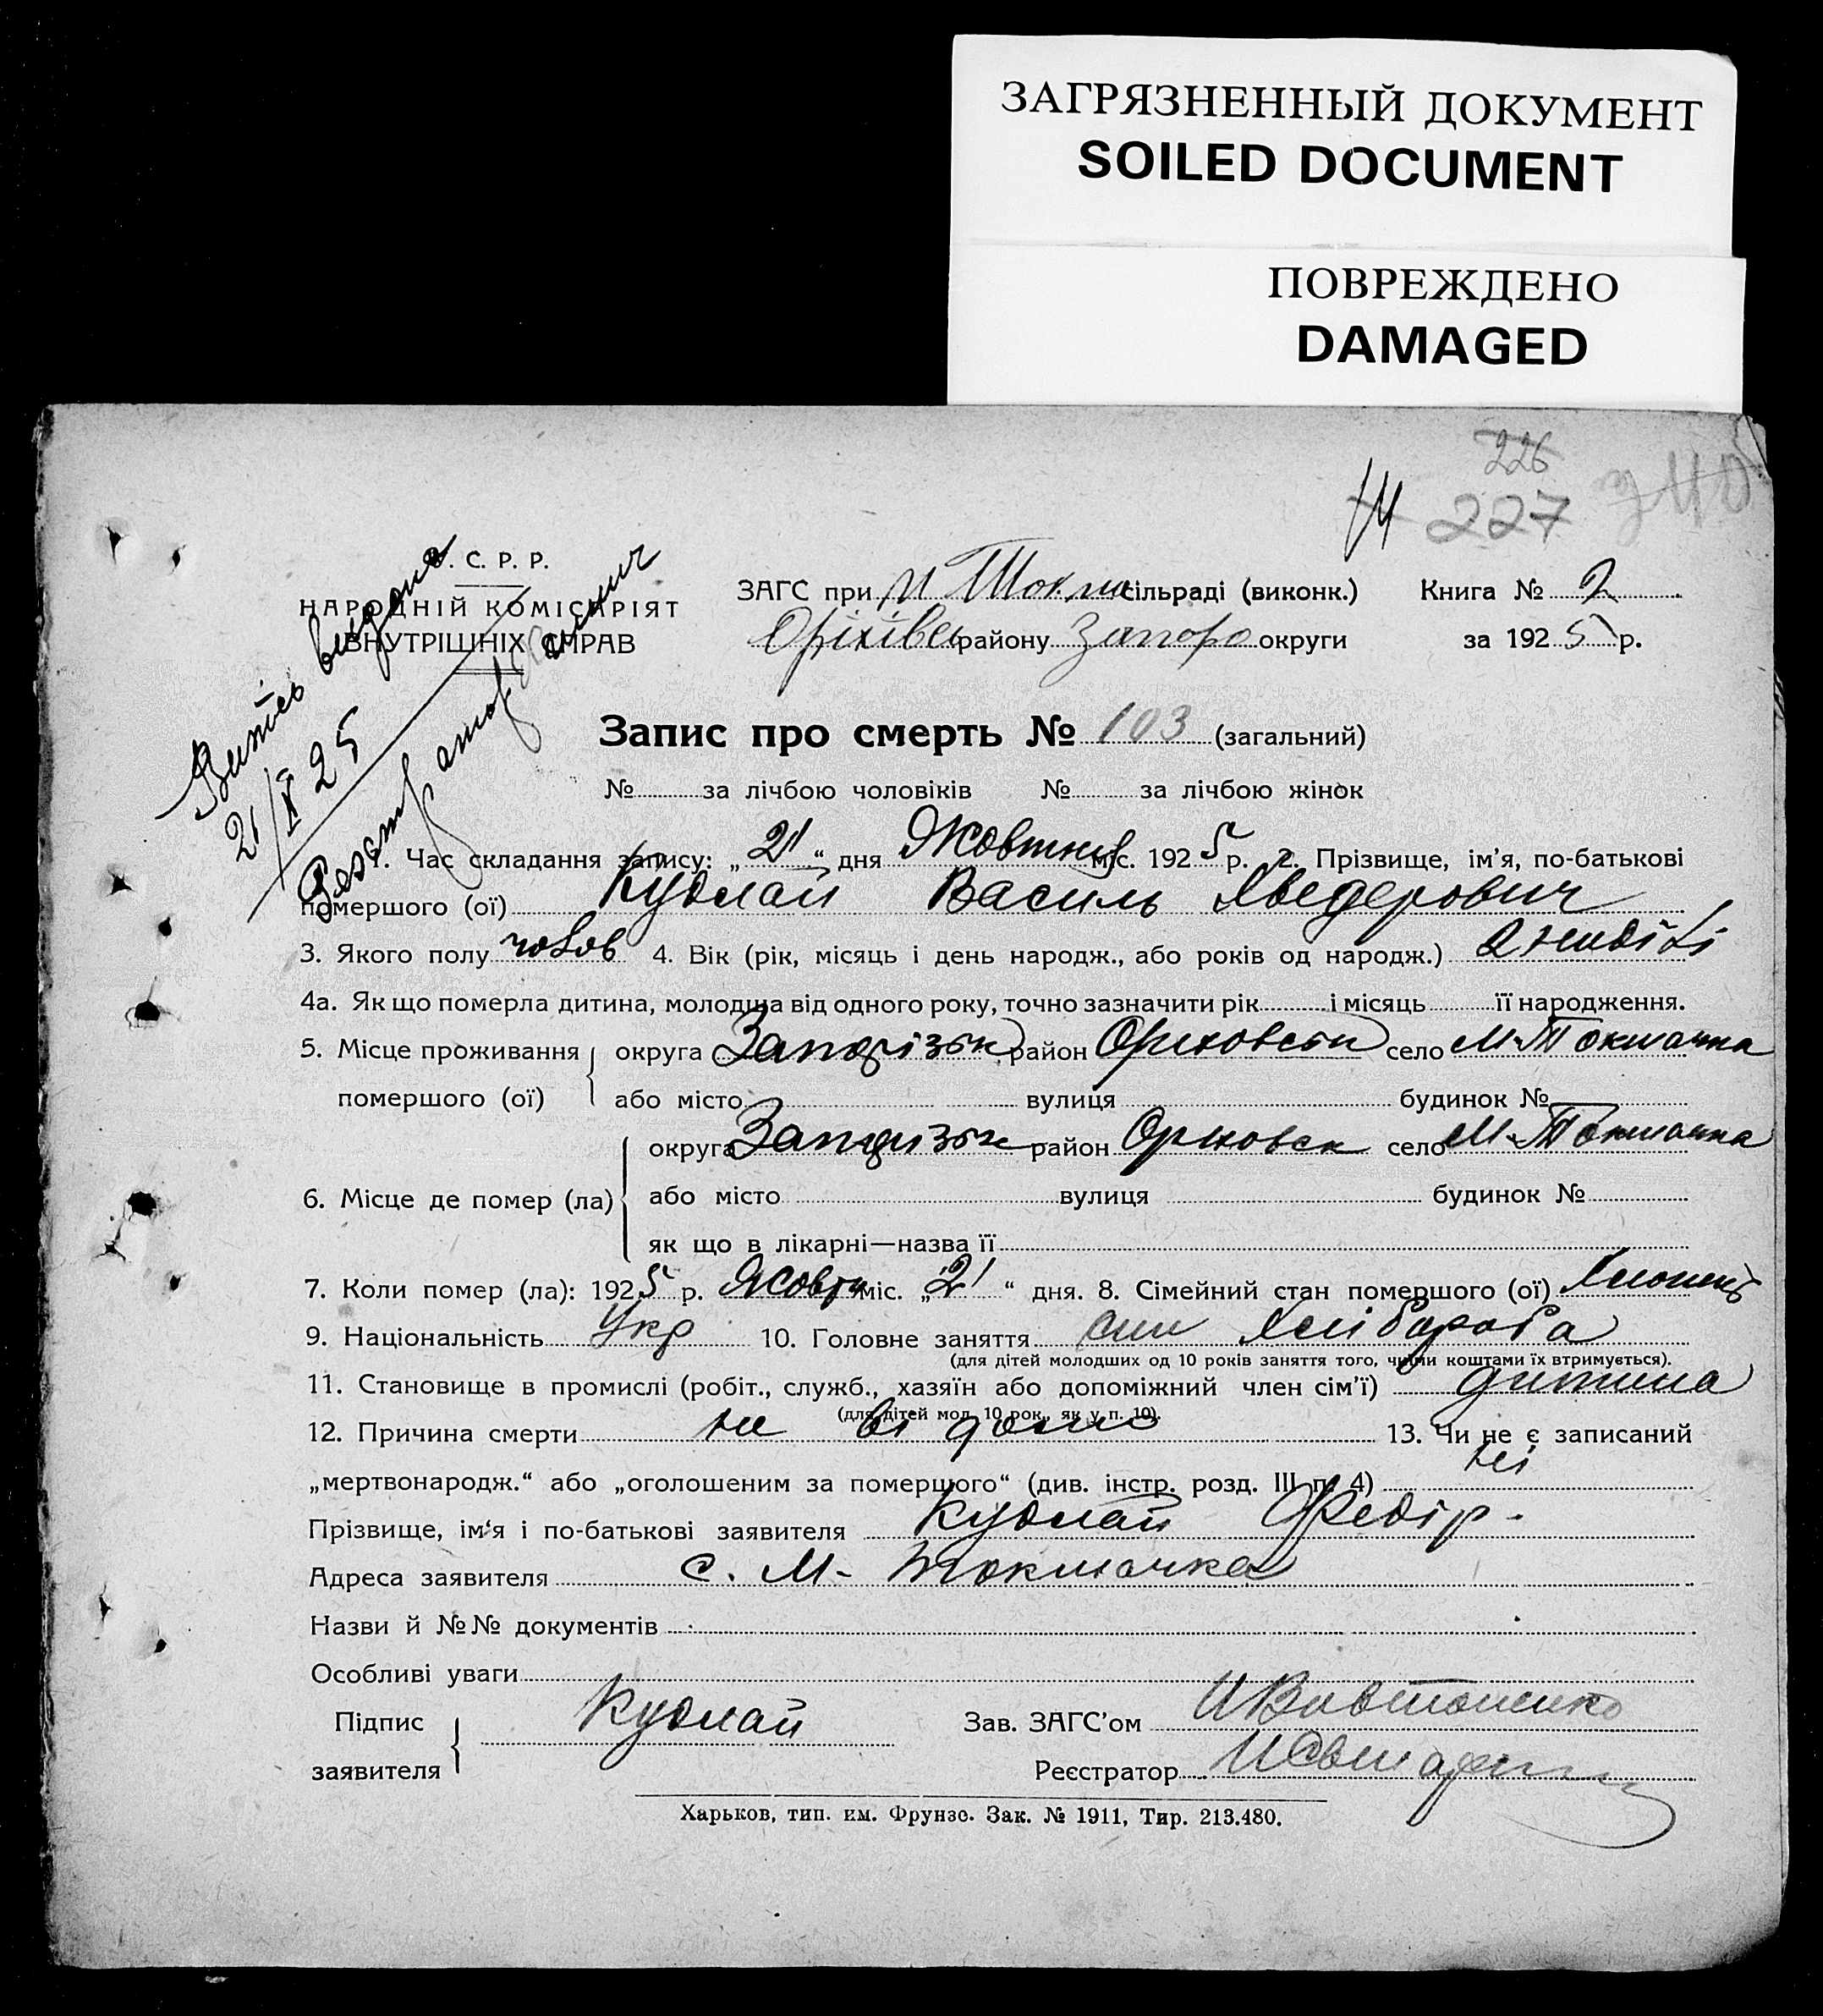 ЗАГРЯЗНЕННЫЙ ДОКУМЕНТ
SOILED DOCUMENT
ПОВРЕЖДЕНО
DAMAGED
226
14 227
. С. Р. Р.
НАРОДНІЙ КОМІСАРІЯТ
ВНУТРІШНІХ СПРАВ
Витяг видано
21/X 25
ЗАГС при М Токма сільраді (виконк.) Книга № 2
Оріхівсь району Запоро округи за 1925 р.
Запис про смерть № 103 (загальний)
№ за лічбою чоловіків № за лічбою жінок
1. Час складання запису: „21“ дня Жовтня міс. 1925 р. 2. Прізвище, ім’я, по-батькові
помершого (ої) Кудлай Василь Хведерович
3. Якого полу чолов 4. Вік (рік, місяць і день народж., або років од народж.) 2 неділі
4а. Як що померла дитина, молодша від одного року, точно зазначити рік і місяць її народження.
5. Місце проживання округа Запорізьк район Ориховськ село М-Токмачка
помершого (ої) або місто вулиця будинок №
округа Запорізьк район Ориховск село М-Токмачка
6. Місце де помер (ла) або місто вулиця будинок №
як що в лікарні—назва її
7. Коли помер (ла): 1925 р. Жовтн міс. „21“ дня. 8. Сімейний стан помершого (ої) Хлопець
9. Національність Укр 10. Головне заняття син Хлібороба
(для дітей молодших од 10 років заняття того, чиїми коштами їх втримується).
11. Становище в промислі (робіт., служб., хазяїн або допоміжний член сім’ї) дитина
(для дітей мол. 10 рок., як у п. 10).
12. Причина смерти не відомо 13. Чи не є записаний
„мертвонародж.“ або „оголошеним за помершого“ (див. інстр. розд. III п. 4) ні
Прізвище, ім’я і по-батькові заявителя Кудлай Федір.
Адреса заявителя с. М-Токмачка
Назви й №№ документів
Особливі уваги
Підпис Кудлай Зав. ЗАГС’ом
заявителя Реєстратор
Харьков, тип. им. Фрунзе. Зак. № 1911, Тир. 213.480.